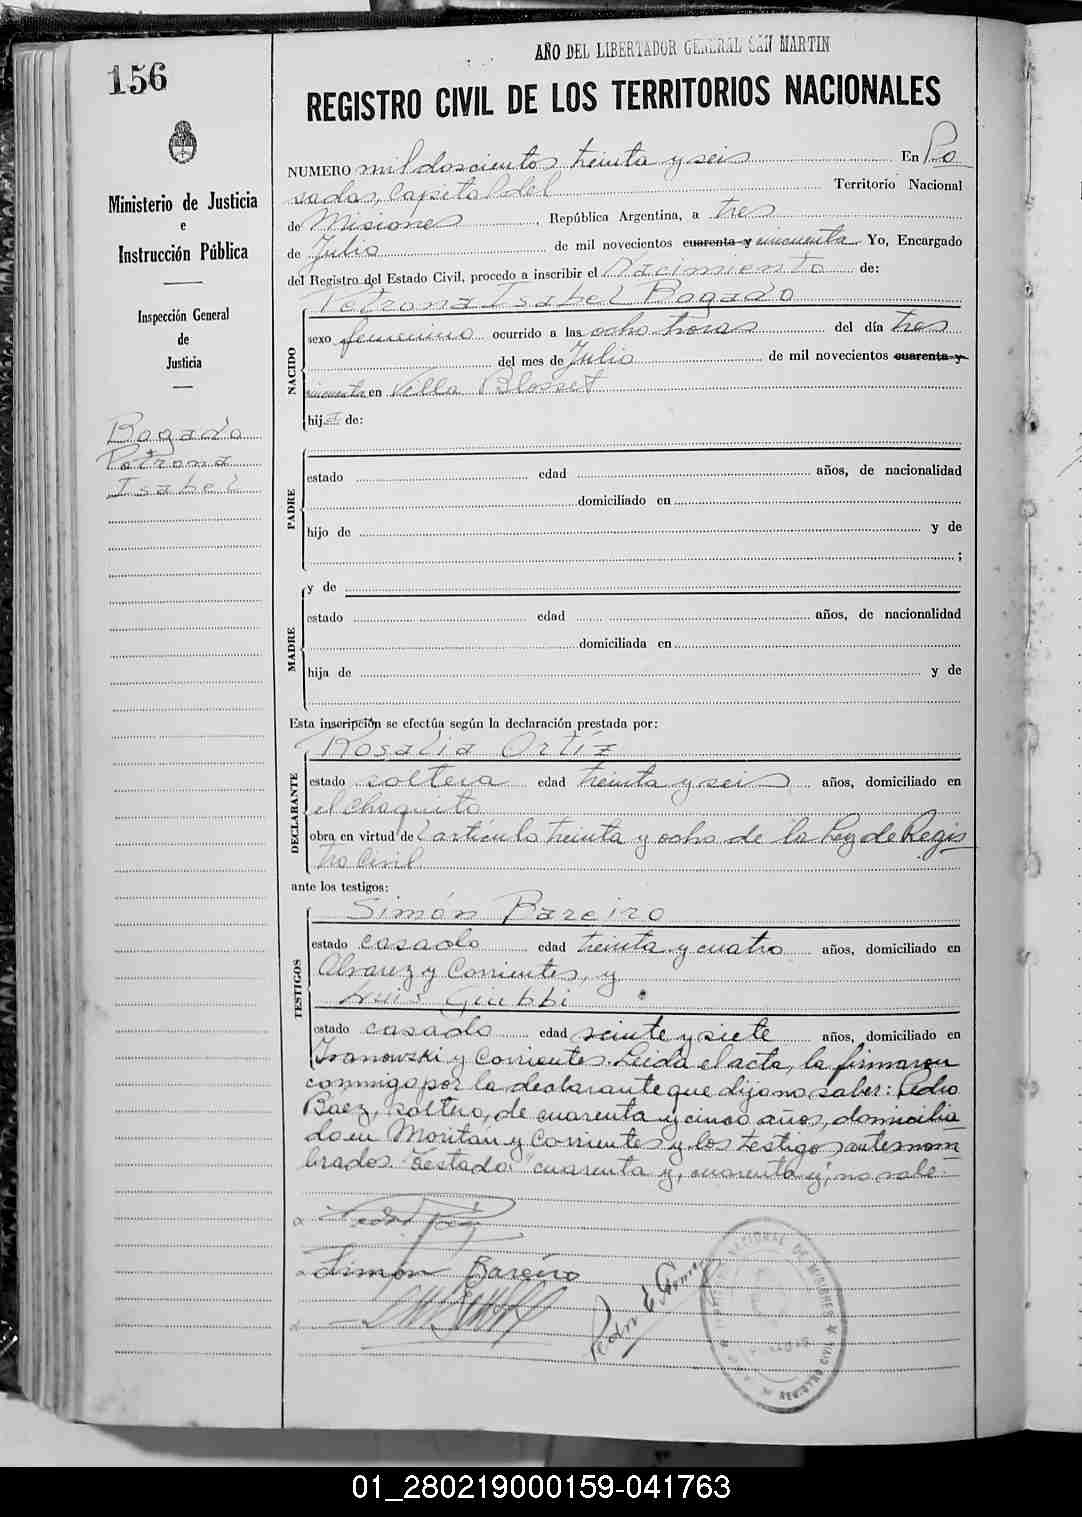 156
AÑO DEL LIBERTADOR GENERAL SAN MARTIN
REGISTRO CIVIL DE LOS TERRITORIOS NACIONALES
Ministerio de Justicia
e
Instrucción Pública
Inspección General
de
Justicia
Bogado
Petrona
Isabel
NUMERO mil doscientos treinta y seis En Po
sadas, capital del Territorio Nacional
de Misiones, República Argentina, a tres
de Julio de mil novecientos cuarenta y cincuenta Yo, Encargado
del Registro del Estado Civil, procedo a inscribir el Nacimiento de:
Petrona Isabel Bogado
NACIDO
sexo femenino ocurrido a las ocho horas del día tres
del mes de Julio de mil novecientos cuarenta y
cincuenta en Villa Blosset
hija de:
PADRE
estado edad años, de nacionalidad
domiciliado en
hijo de y de
;
y de
MADRE
estado edad años, de nacionalidad
domiciliada en
hija de y de
Esta inscripción se efectúa según la declaración prestada por:
Rosalia Ortíz
DECLARANTE
estado soltera edad treinta y seis años, domiciliado en
el chaquito
obra en virtud del artículo treinta y ocho de la Ley de Regis
tro Civil
ante los testigos:
Simón Bareiro
TESTIGOS
estado casado edad treinta y cuatro años, domiciliado en
Alvarez y Corrientes, y
Luis Giubbi
estado casado edad veinte y siete años, domiciliado en
Ivanowski y Corrientes. Leida el acta, la firmaron
conmigo por la declarante que dijo no saber: Pedro
Baez, soltero, de cuarenta y cinco años, domicilia
do en y Corrientes y los testigos antenom
brados. Testado: "cuarenta y, cuarenta y", no vale.
Simón Bareiro
REGISTRO CIVIL
01_280219000159-041763